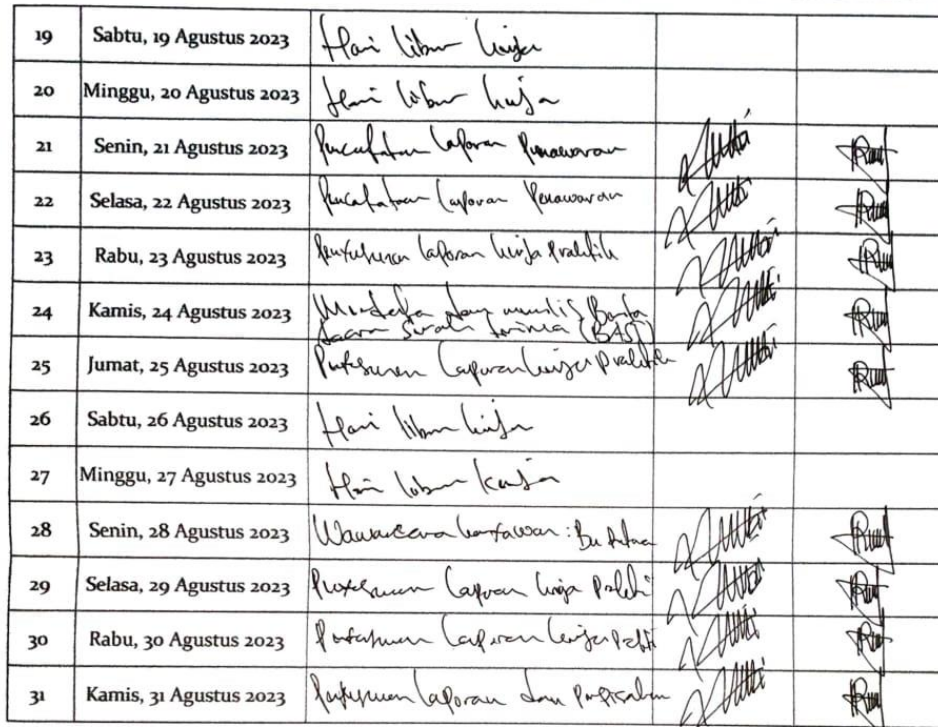 19 Sabtu, 19 Agustus 2023 Hari libur kerja
20 Minggu, 20 Agustus 2023 Hari libur kerja
21 Senin, 21 Agustus 2023 Pencatatan laporan Penawaran
22 Selasa, 22 Agustus 2023 Pencatatan laporan Penawaran
23 Rabu, 23 Agustus 2023 Penyusunan laporan kerja Praktik
24 Kamis, 24 Agustus 2023 dan menulis Berita
Acara Serah Terima (BAST)
25 Jumat, 25 Agustus 2023 Penyusunan laporan kerja praktik
26 Sabtu, 26 Agustus 2023 Hari libur kerja
27 Minggu, 27 Agustus 2023 Hari libur kerja
28 Senin, 28 Agustus 2023 Wawancara karyawan: Bu
29 Selasa, 29 Agustus 2023 Penyusunan laporan kerja
30 Rabu, 30 Agustus 2023 Penyusunan laporan kerja
31 Kamis, 31 Agustus 2023 Penyusunan laporan dan